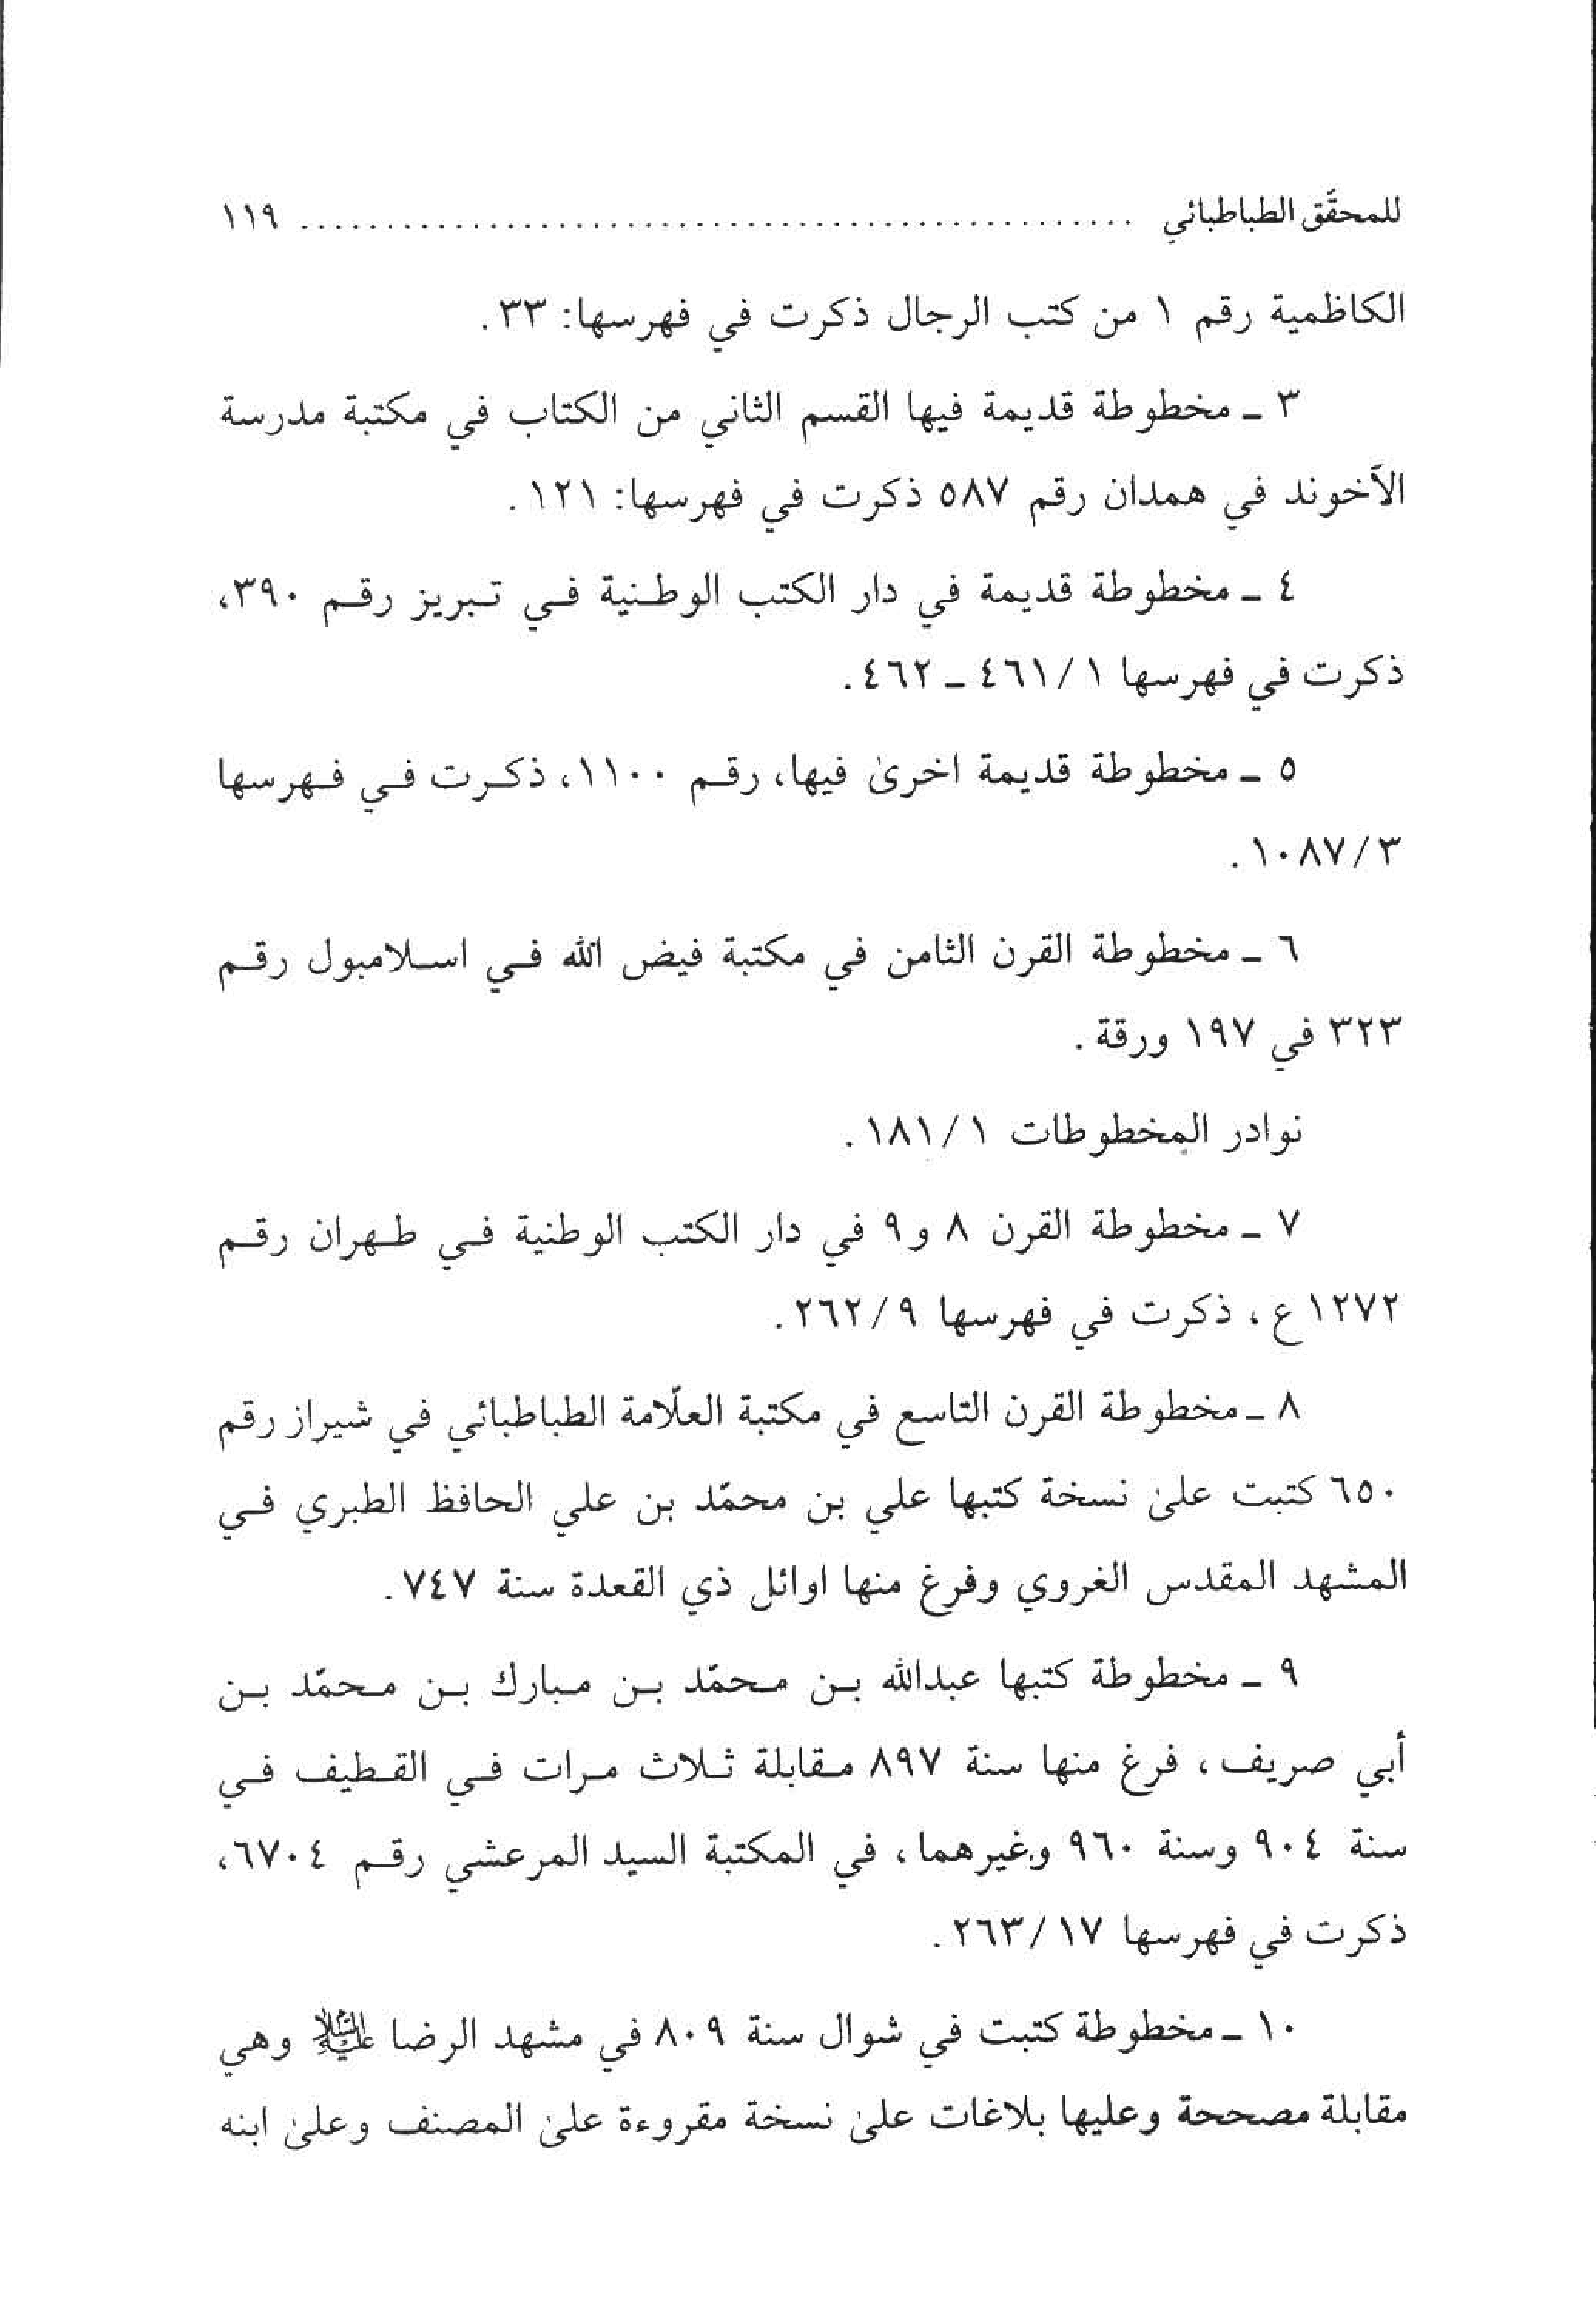 للمحقّق الطباطبائي ................................................. ١١٩
الكاظمية رقم ١ من كتب الرجال ذكرت في فهرسها: ٣٣.
٣ ـ مخطوطة قديمة فيها القسم الثاني من الكتاب في مكتبة مدرسة
الآخوند في همدان رقم ٥٨٧ ذكرت في فهرسها: ١٢١.
٤ ـ مخطوطة قديمة في دار الكتب الوطنية في تبريز رقم ٣٩٠،
ذكرت في فهرسها ١/ ٤٦١ ـ ٤٦٢.
٥ ـ مخطوطة قديمة اخرىٰ فيها، رقم ١١٠٠، ذكرت في فهرسها
٣/ ١٠٨٧.
٦ ـ مخطوطة القرن الثامن في مكتبة فيض الله في اسلامبول رقم
٣٢٣ في ١٩٧ ورقة.
نوادر المخطوطات ١/ ١٨١.
٧ ـ مخطوطة القرن ٨ و٩ في دار الكتب الوطنية في طهران رقم
١٢٧٢ع، ذكرت في فهرسها ٩/ ٢٦٢.
٨ ـ مخطوطة القرن التاسع في مكتبة العلّامة الطباطبائي في شيراز رقم
٦٥٠ كتبت علىٰ نسخة كتبها علي بن محمّد بن علي الحافظ الطبري في
المشهد المقدس الغروي وفرغ منها اوائل ذي القعدة سنة ٧٤٧.
٩ ـ مخطوطة كتبها عبدالله بن محمّد بن مبارك بن محمّد بن
أبي صريف، فرغ منها سنة ٨٩٧ مقابلة ثلاث مرات في القطيف في
سنة ٩٠٤ وسنة ٩٦٠ وغيرهما، في المكتبة السيد المرعشي رقم ٦٧٠٤،
ذكرت في فهرسها ١٧/ ٢٦٣.
١٠ ـ مخطوطة كتبت في شوال سنة ٨٠٩ في مشهد الرضا عليه السلام وهي
مقابلة مصححة وعليها بلاغات علىٰ نسخة مقروءة علىٰ المصنف وعلىٰ ابنه